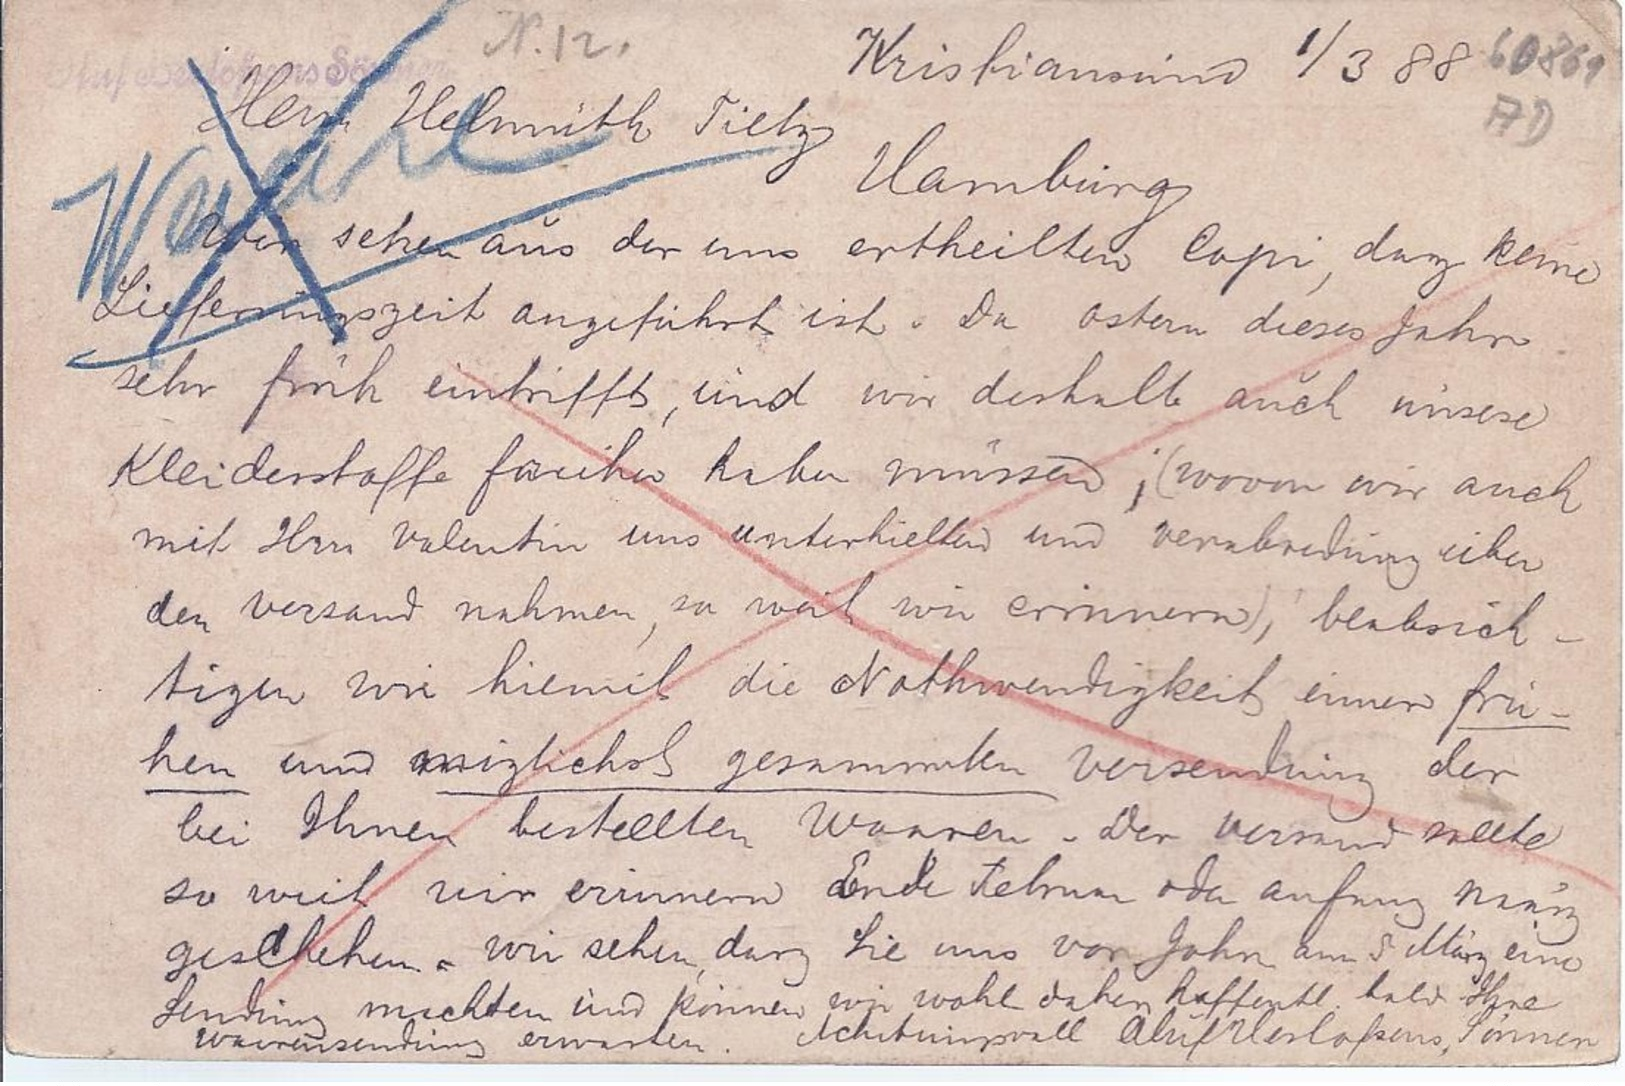 N. 12.
Kristiansund 1/3 88
60869
AD
Herrn Helmuth Tietz
Hamburg
Waare
Wir sehen aus der uns ertheilten Copi, dasz keine
Lieferungszeit angeführt ist. Da ostern dieses Jahr
sehr früh eintrifft, und wir deshalb auch unsere
Kleiderstoffe früher haben müssen; (wovon wir auch
mit Hrn Valentin uns unterhielten und verabredung über
den versand nahmen, so weit wir erinnern), beabsich-
tigen wir hiemit die Nothwendigkeit einen frü-
hen und möglichst gesammten versendung der
bei Ihnen bestellten Waaren. Der versand sollte
so weit wir erinnern Ende Februar oder anfang März
geschehen. wir sehen, dasz Sie uns vor Jahr am 8 März eine
Sendung machten und können wir wohl daher hoffentl. bald Ihre
waarensendung erwarten. Achtungsvoll Sönner